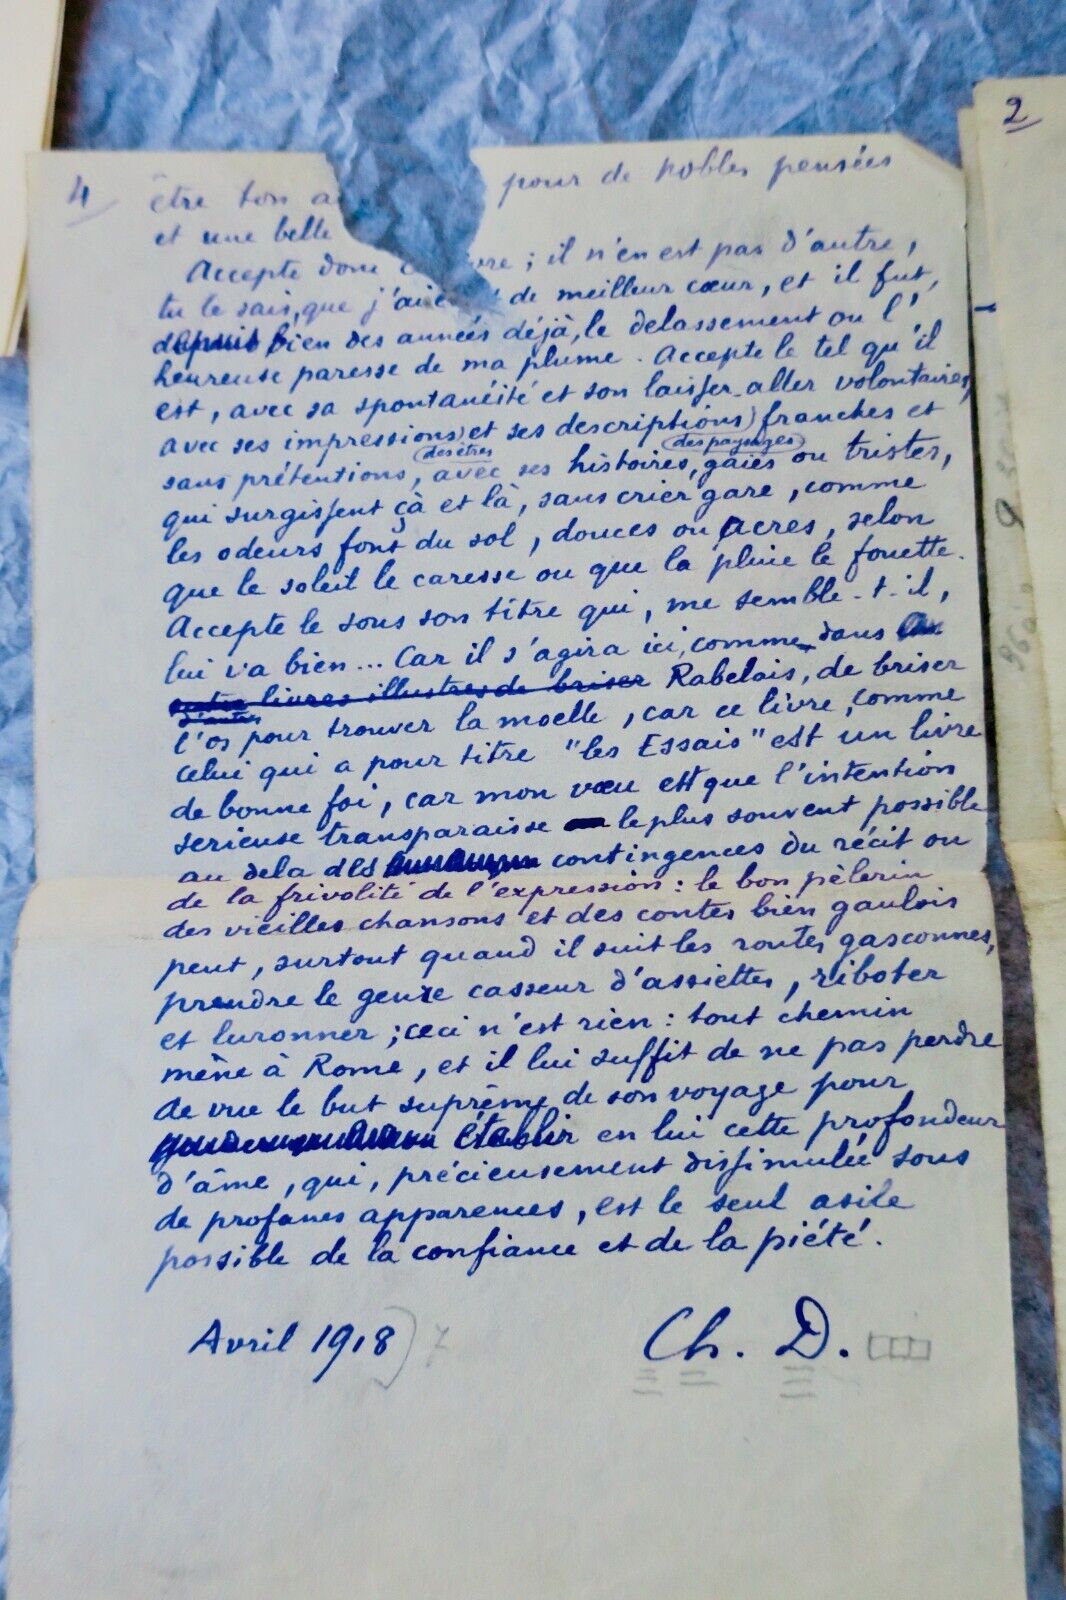 2
4
être ton a pour de nobles pensées
et une belle
Accepte donc ce vre ; il n'en est pas d'autre,
tu le sais, que j'ai é t de meilleur cœur, et il fut,
depuis bien des années déjà, le delassement ou l'
heureuse paresse de ma plume. Accepte le tel qu'il
est, avec sa spontanéité et son laisser-aller volontaires,
avec ses impressions et ses descriptions franches et
des êtres des paysages
sans prétentions, avec ses histoires, gaies ou tristes,
qui surgissent çà et là, sans crier gare, comme
les odeurs font du sol, douces ou âcres, selon
que le soleil le caresse ou que la pluie le fouette.
Accepte le sous son titre qui, me semble-t-il,
lui va bien... Car il s'agira ici, comme dans
livres illustres de briser Rabelais, de briser
d'autres
l'os pour trouver la moelle, car ce livre, comme
celui qui a pour titre "les Essais" est un livre
de bonne foi, car mon vœu est que l'intention
serieuse transparaisse le plus souvent possible
au dela des contingences du récit ou
de la frivolité de l'expression : le bon pèlerin
des vieilles chansons et des contes bien gaulois
peut, surtout quand il suit les routes gasconnes,
prendre le genre casseur d'assiettes, riboter
et luronner ; ceci n'est rien : tout chemin
mène à Rome, et il lui suffit de ne pas perdre
de vue le but suprême de son voyage pour
établir en lui cette profondeur
d'âme, qui, précieusement dissimulée sous
de profanes apparences, est le seul asile
possible de la confiance et de la piété.
Avril 1918 7
Ch. D.